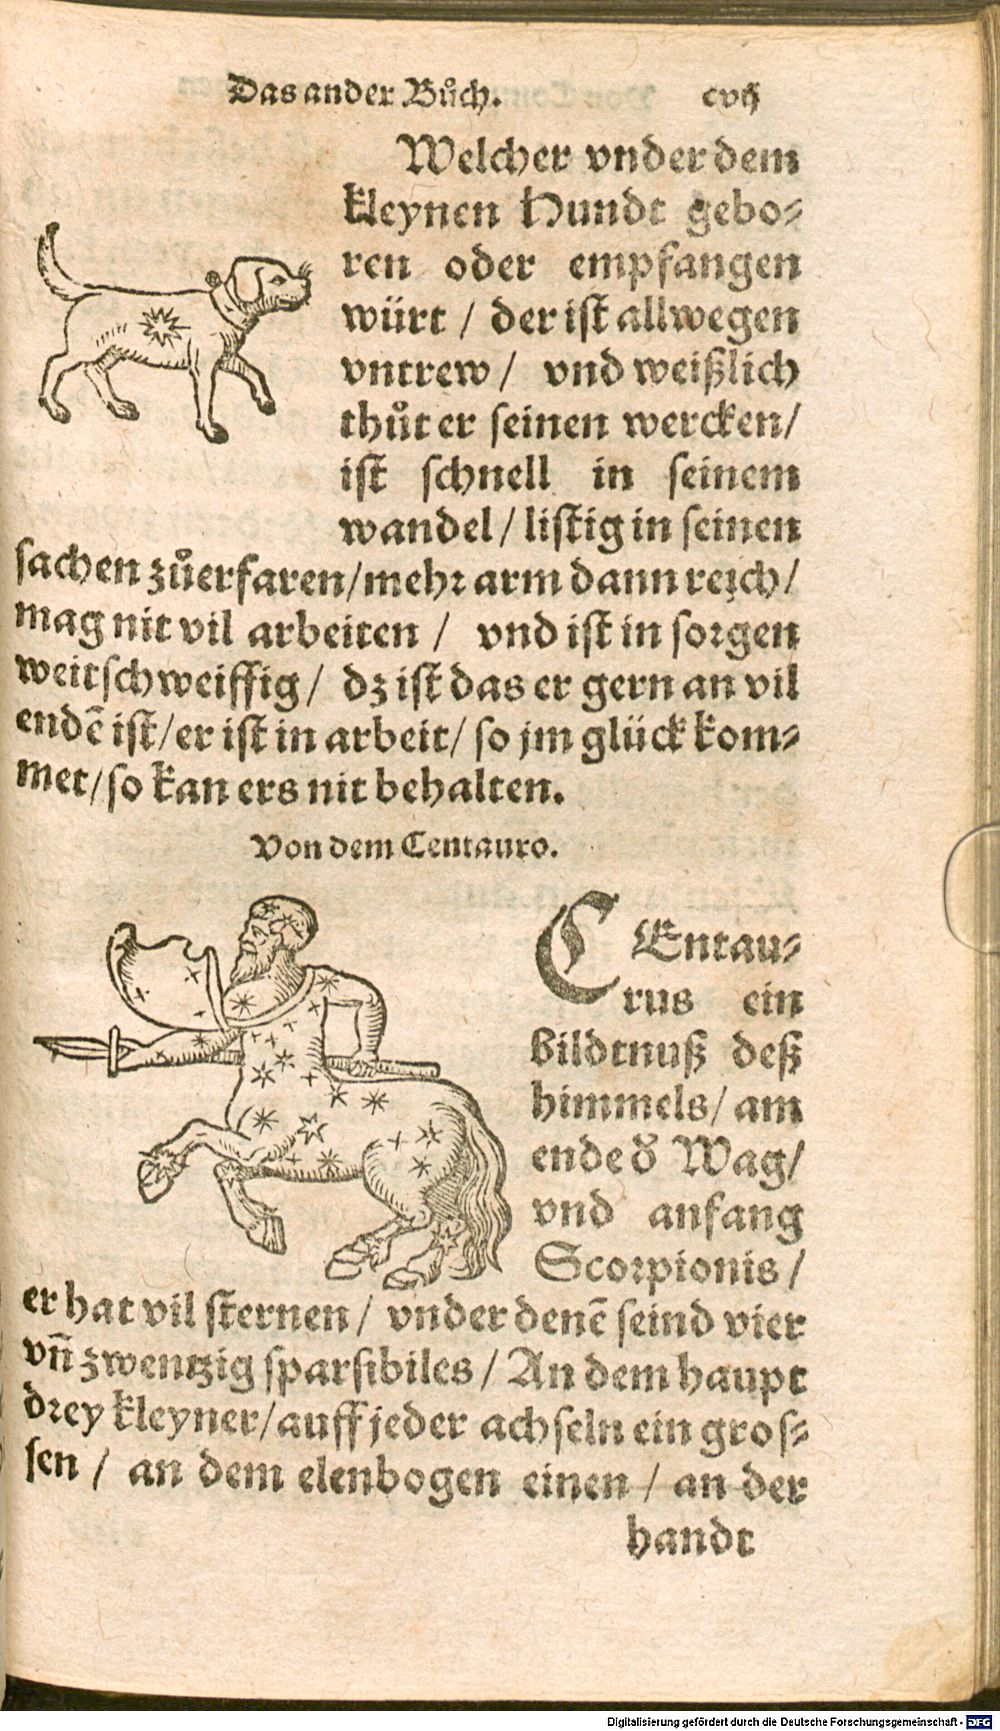 Das ander Bůch. cvij
Welcher vnder dem
kleynen Hundt gebo⸗
ren oder empfangen
würt / der ist allwegen
vntrew / vnd weißlich
thůt er seinen wercken/
ist schnell in seinem
wandel / listig in seinen
sachen zůerfaren/mehr arm dann reich/
mag nit vil arbeiten / vnd ist in sorgen
weitschweiffig / dz ist das er gern an vil
endē ist/er ist in arbeit/ so jm glück kom⸗
met/so kan ers nit behalten.
Von dem Centauro.
CEntau⸗
rus ein
bildtnuß deß
himmels/ am
ende ď Wag/
vnd anfang
Scorpionis /
er hat vil sternen / vnder denē seind vier
vñ zwentzig sparsibiles / An dem haupt
drey kleyner/auff jeder achseln ein gros⸗
sen / an dem elenbogen einen / an der
handt
Digitalisierung gefördert durch die Deutsche Forschungsgemeinschaft - DFG